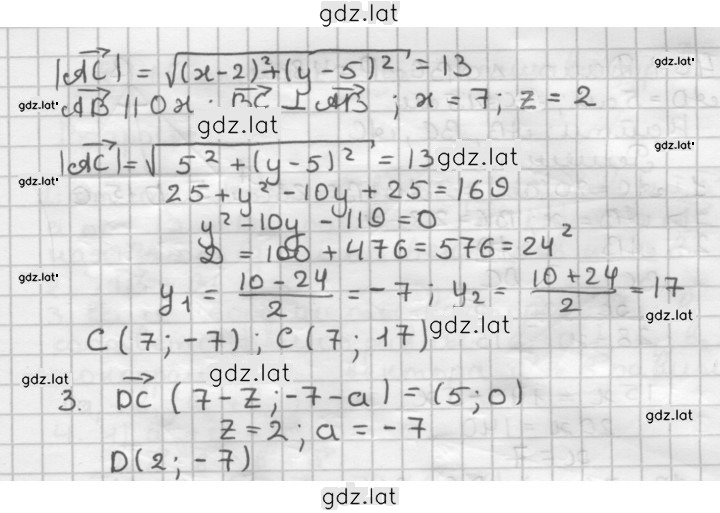 gdz.lat
|AC| = √(x-2)²+(y-5)² = 13 gdz.lat
gdz.lat AB || Ox . BC ⊥ AB ; x = 7; z = 2
gdz.lat
|AC| = √5² + (y-5)² = 13 gdz.lat gdz.lat
gdz.lat 25 + y² - 10y + 25 = 169
y² - 10y - 119 = 0
D = 100 + 476 = 576 = 24²
gdz.lat y₁ = (10 - 24)/2 = -7 ; y₂ = (10 + 24)/2 = 17
gdz.lat
C (7; -7) ; C (7; 17) gdz.lat
gdz.lat gdz.lat
3. DC (7 - z; -7 - a) = (5; 0) gdz.lat
z = 2; a = -7
D(2; -7)
gdz.lat